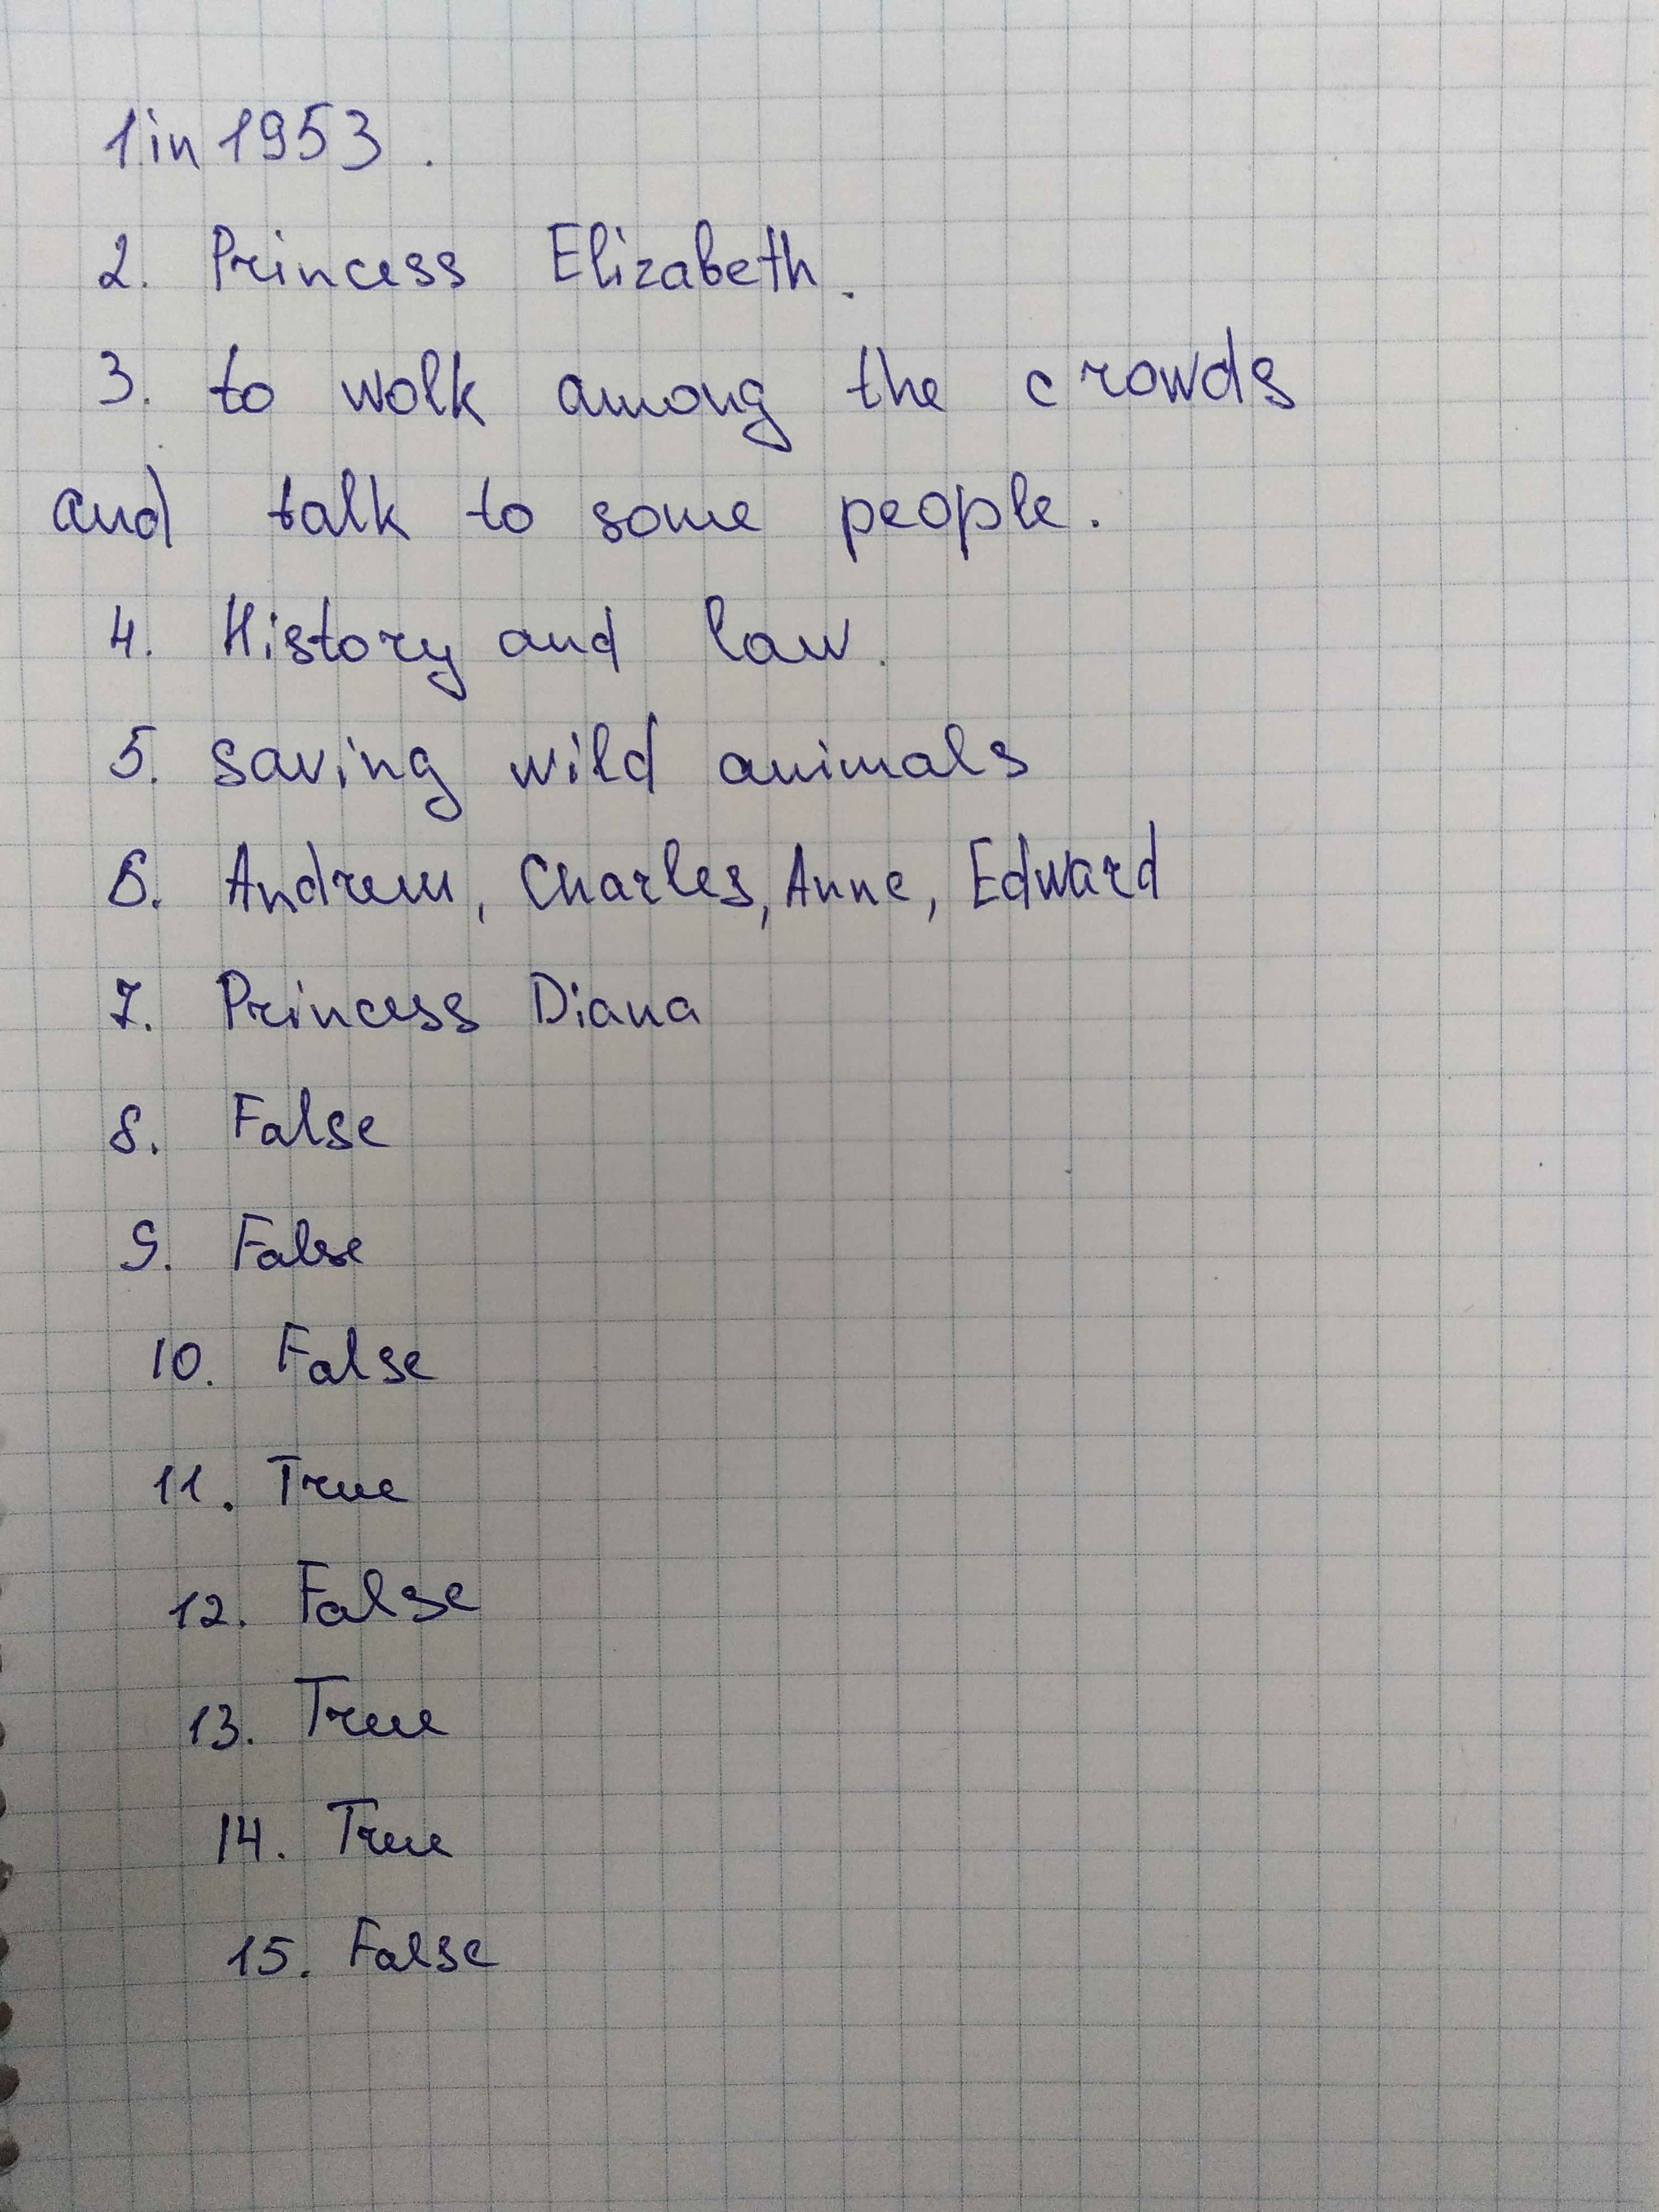 1 in 1953.
2. Princess Elizabeth.
3. to wolk among the crowds
and talk to some people.
4. History and law.
5. saving wild animals
6. Andrew, Charles, Anne, Edward
7. Princess Diana
8. False
9. False
10. False
11. True
12. False
13. True
14. True
15. False